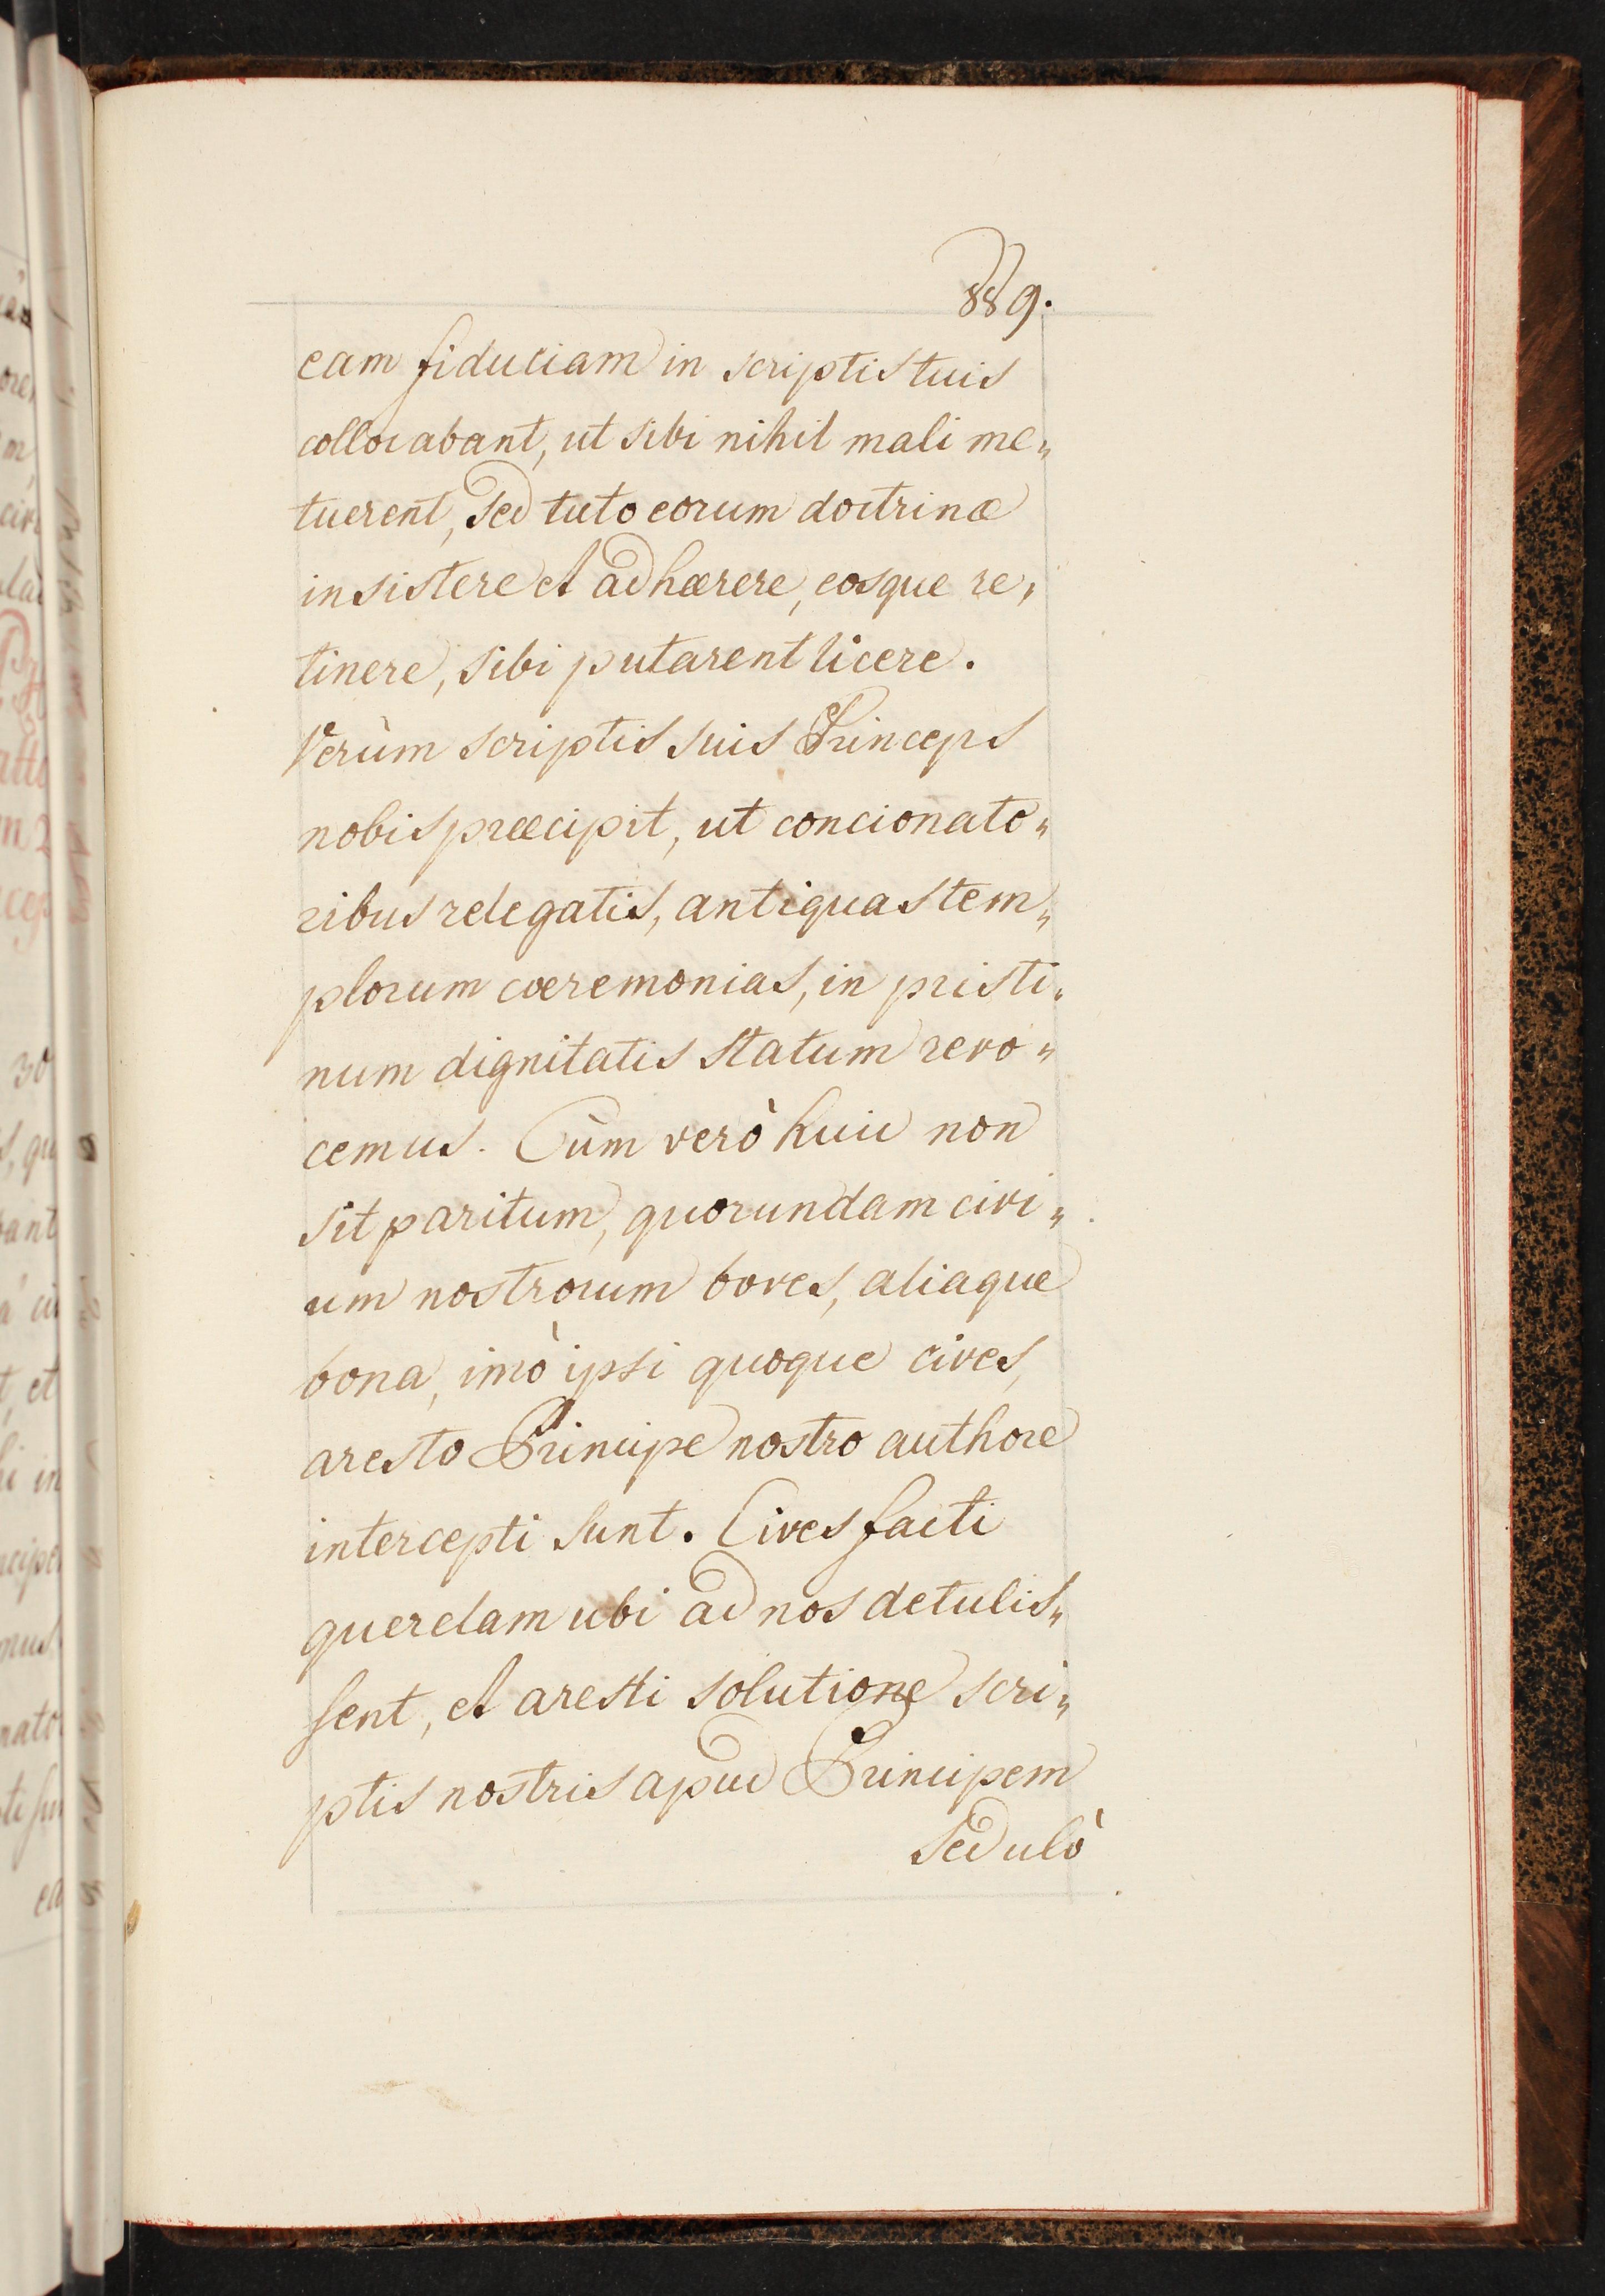 889.
eam fiduciam in scriptis tuis
collocabant, ut sibi nihil mali me„
tuerent, sed tuto eorum doctrinæ
insistere et adhærere, eosque re„
tinere, sibi putarent licere.
Verùm scriptis suis Princeps
nobis præcipit, ut concionato„
ribus relegatis, antiquas tem„
plorum cœremonias, in pristi„
num dignitatis statum revo„
cemus. Cùm verò huic non
sit paritum, quorundam civi„
um nostrorum boves, aliaque
bona, imò ipsi quoque cives,
aresto Principe nostro authore
intercepti sunt. Cives facti
querelam ubi ad nos detulis„
sent, et aresti solutione scri„
ptis nostris apud Principem
sedulò